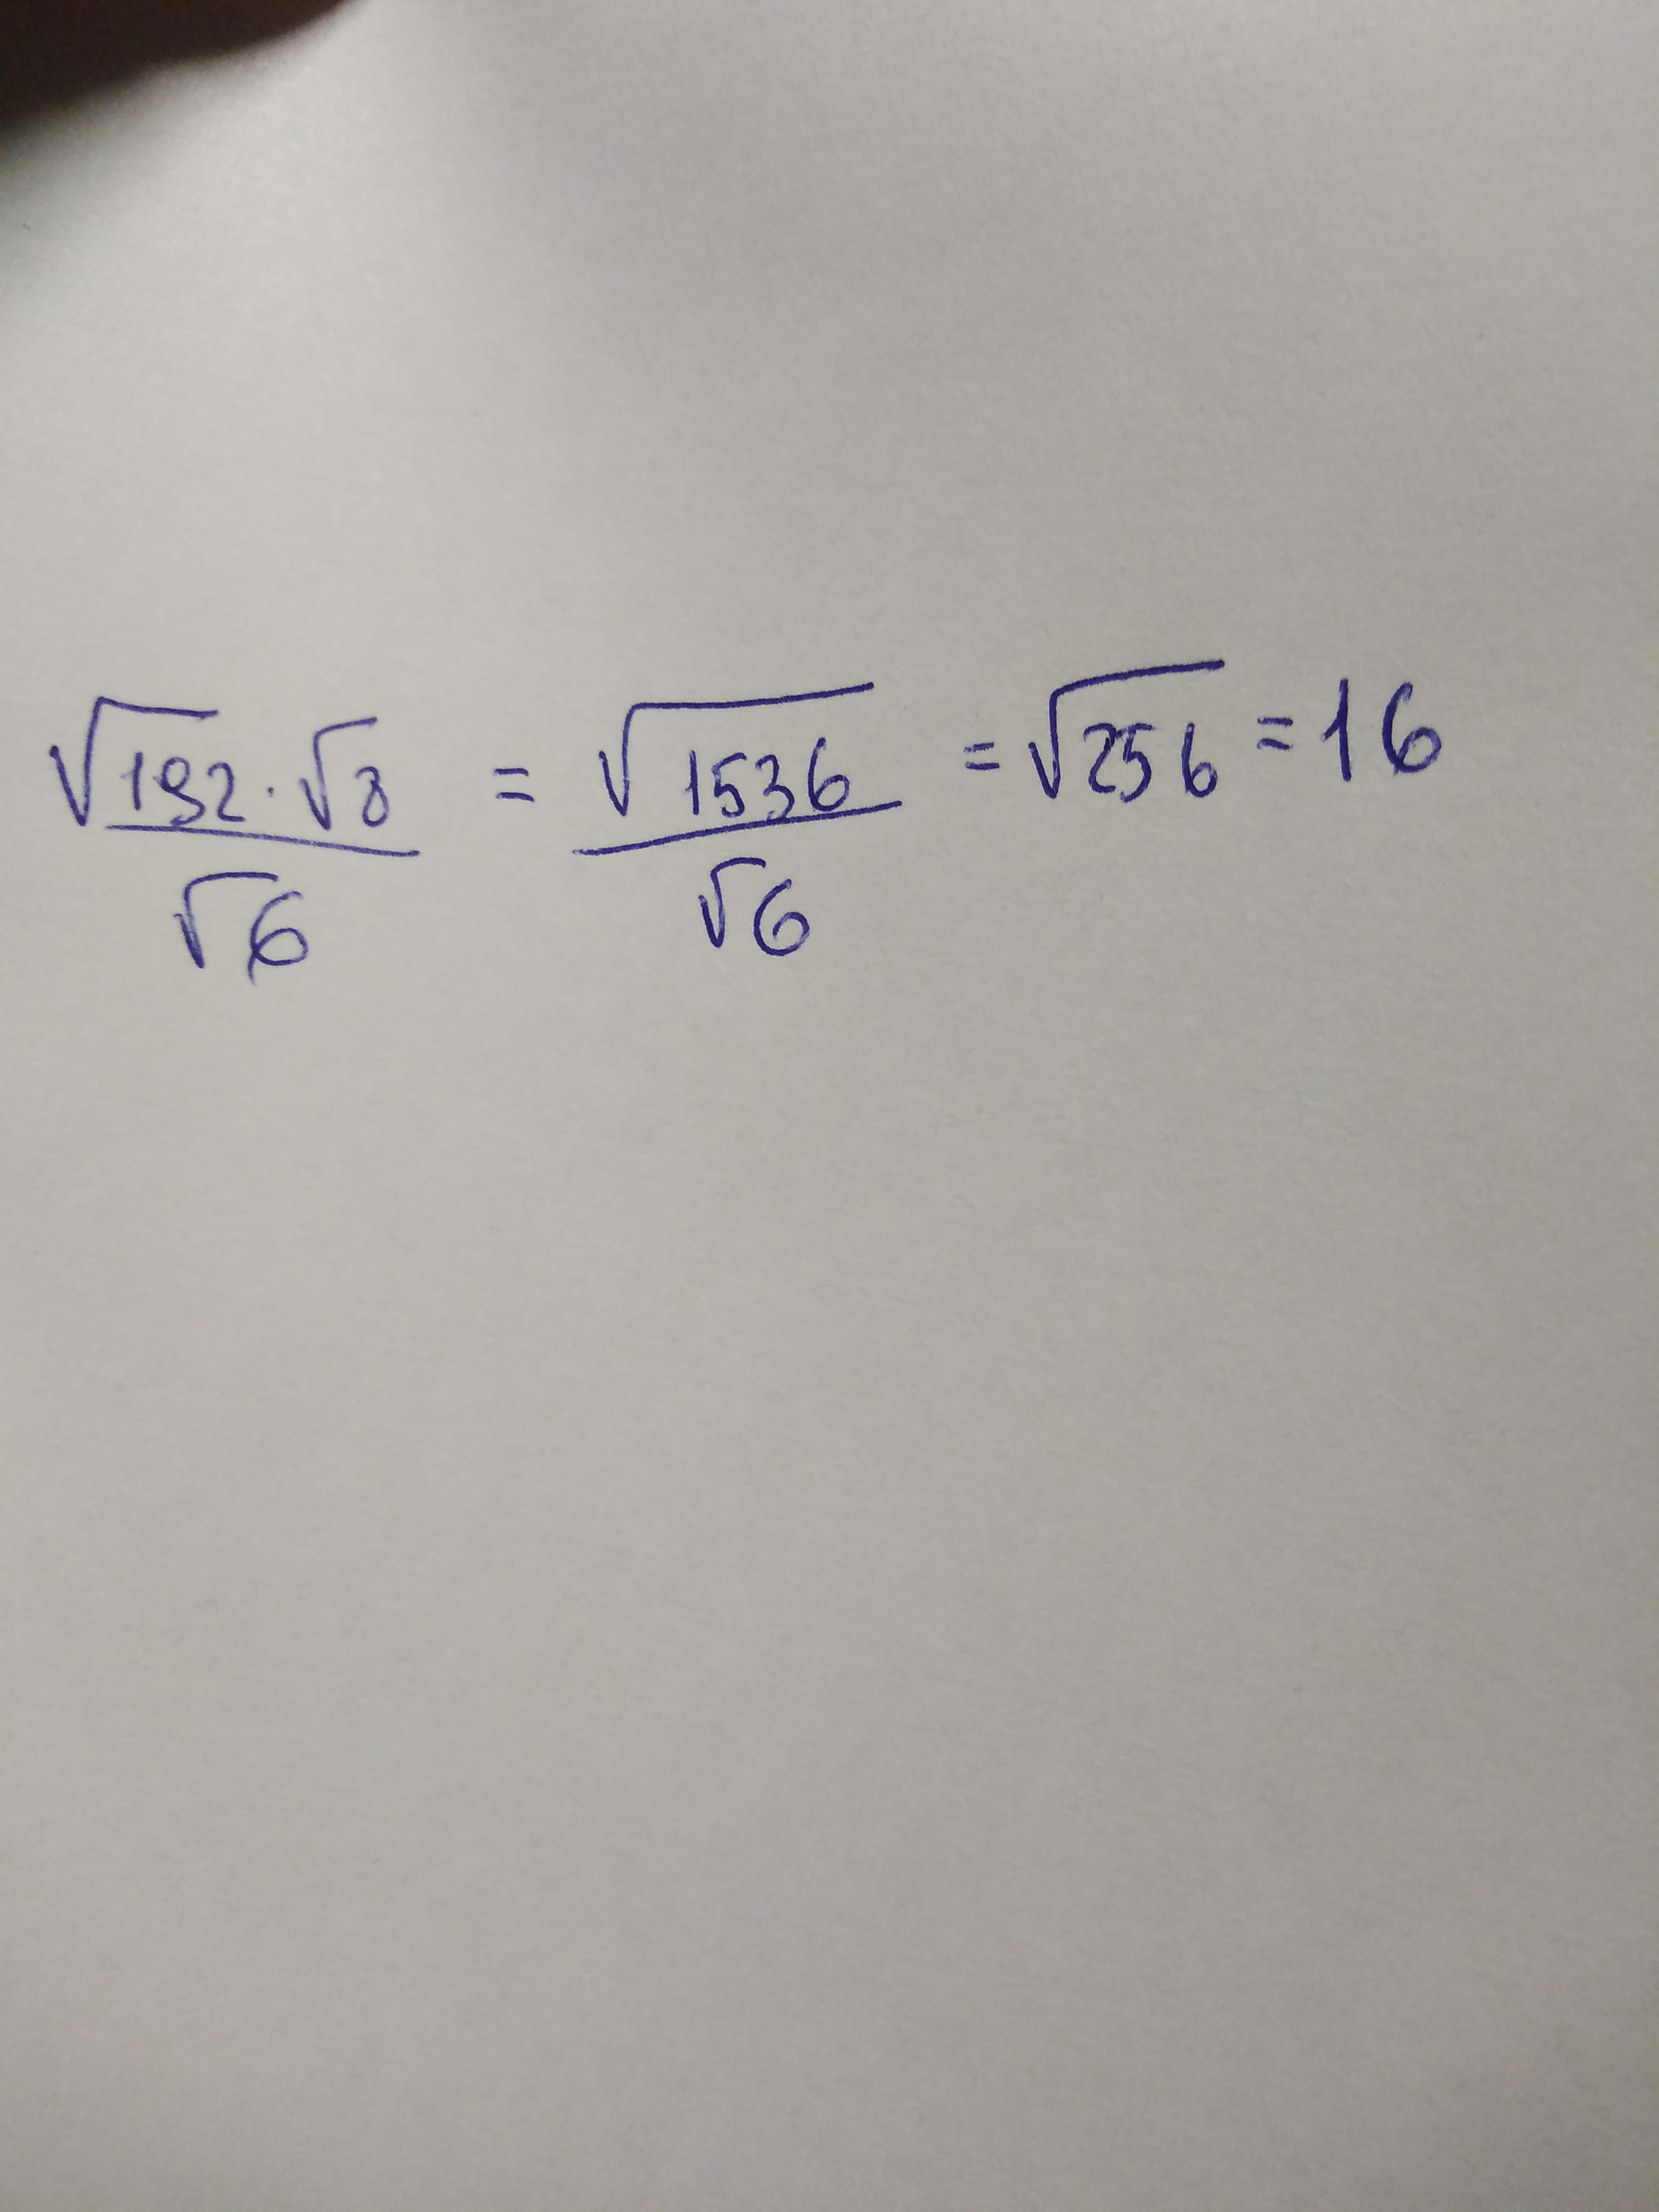 √192 · √8 / √6 = √1536 / √6 = √256 = 16